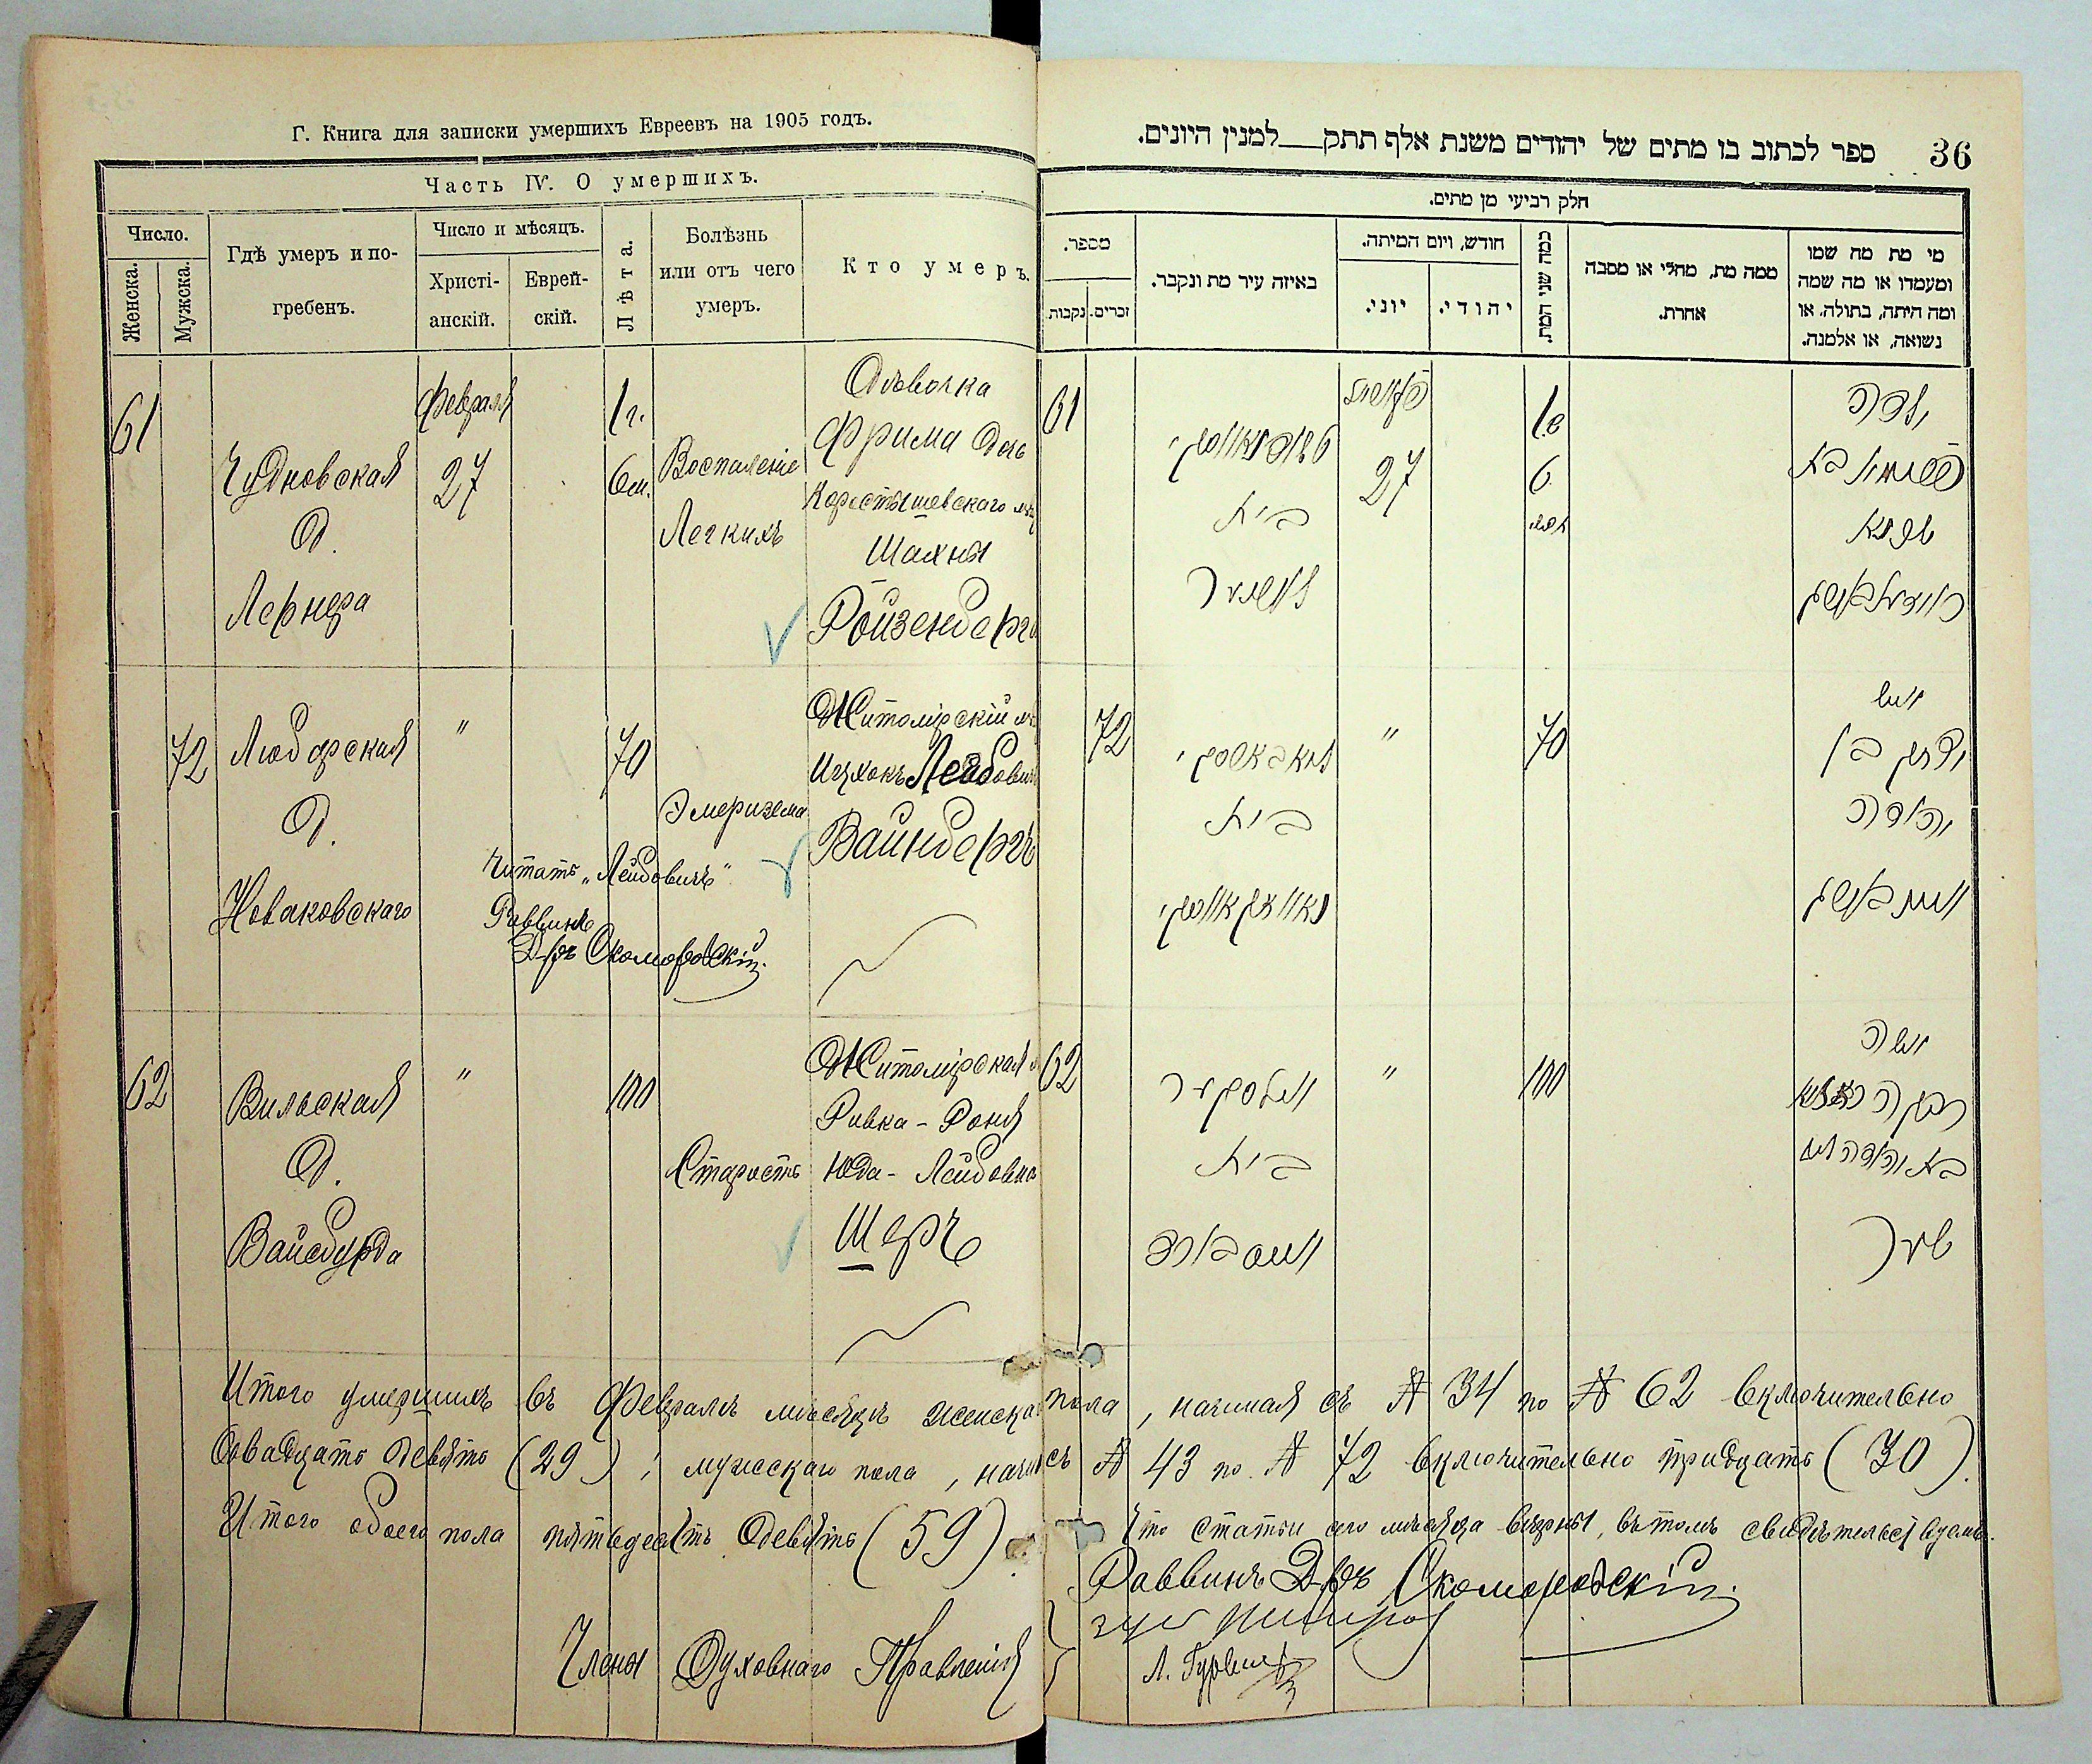 Г. Книга для записки умершихъ Евреевъ на 1905 годъ.
Часть IV. О умершихъ.
Число.
Женска.
Мужска.
Гдѣ умеръ и по-
гребенъ.
Число и мѣсяцъ.
Христі-
анскій.
Еврей-
скій.
Лѣта.
Болѣзнь
или отъ чего
умеръ.
Кто умеръ.
61
Чудновская
д.
Лернера
Февраля
27
1 г.
6 м.
Воспаленіе
Легкихъ
Дѣвочка
Фрима дочь
Коростышевскаго
Шахны
Ройзенберга
72
Любарская
д.
Новаковскаго
"
70
Эмфизема
Житомірскій
Ицхокъ Лейбович
Вайнбергъ
Читать „Лейбовичъ"
Раввинъ
Д-ръ Скомаровскій
62
Вильская
д.
Вайсбурда
"
100
Старость
Житомірская
Ривка - Роня
Юда - Лейбовна
Шеръ
36
ספר לכתוב בו מתים של יהודים משנת אלף תתק___למנין היונים.
חלק רביעי מן מתים.
מספר.
נקבות.
זכרים.
באיזה עיר מת ונקבר.
חודש, ויום המיתה.
יוני.
יהודי.
כמה שני המת.
ממה מת, מחלי או מסבה
אחרת.
מי מת מה שמו
ומעמדו או מה שמה
ומה היתה, בתולה, או
נשואה, או אלמנה.
61
טשודנאווסקי
בית
לערנער
27
1
6
ילדה
פרימא בת
שכנא
רויזענבערג
72
ליובארסקי
בית
נאוואקאווסקי
"
70
איש
יצחק בן
יהודה
וויינבערג
62
ווילסקער
בית
ווייסבורד
"
100
אשה
רבקה
בת יהודה ליב
שער
Итого умершихъ въ Февралѣ мѣсяцѣ женскаго пола, начиная съ № 34 по № 62 включительно
двадцать девять (29); мужскаго пола, начин съ № 43 по № 72 включительно тридцать (30).
Итого обоего пола пятьдесятъ девять (59). Что статьи сего мѣсяца вѣрны, въ томъ свидѣтельствуемъ.
Раввинъ Д-ръ Скомаровскій
Члены Духовнаго Правленія
Л. Гурвич